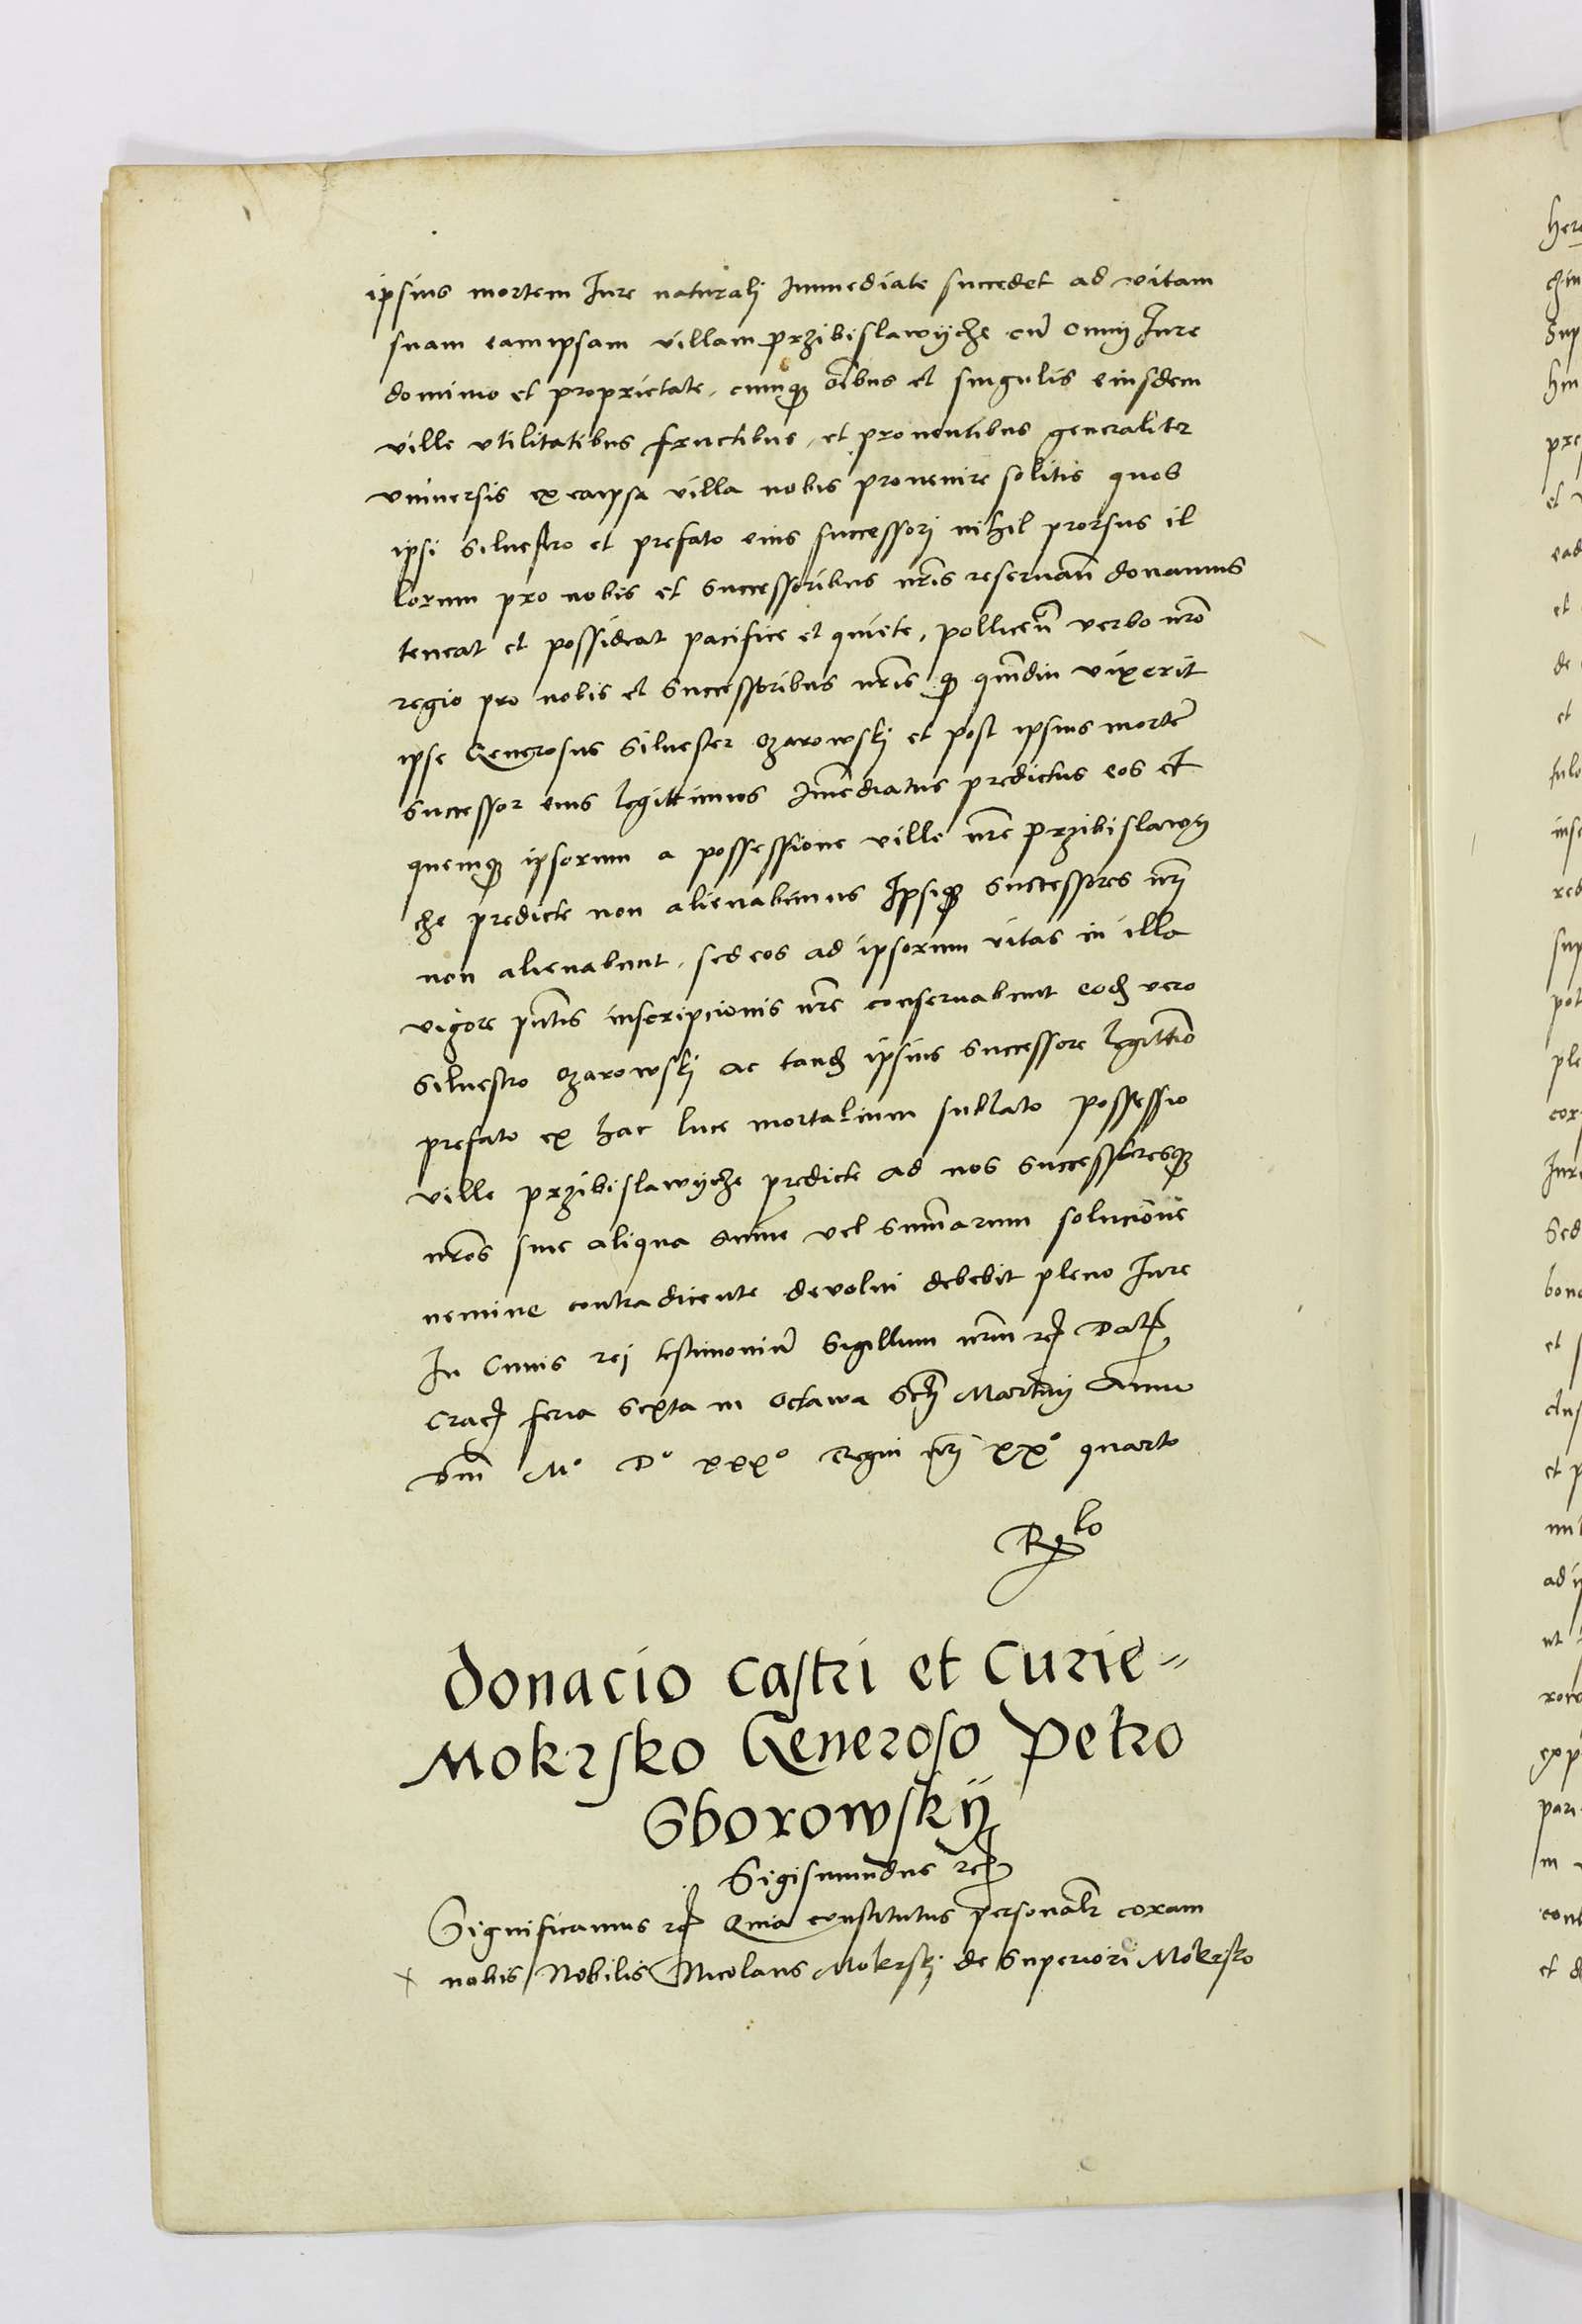 ipsius mortem Iure naturalj Immediate succedet ad vitam
suam eamipsam villam przibislawijcze cu̅ omnj Iure
dominio et proprietate, cumqꝫ o̅ibus et singulis eiusdem
ville vtilitatibus fructibus, et proventibus generaliter
vniuersis ex eaipsa villa nobis provenire solitis quos
ipsi Siluestro et prefato eius successorj nihil prorsus il
lorum pro nobis et Successoribus nr̅is reseruan̅ donamus
teneat et possideat pacifice et quiete, pollicen̅ verbo nr̅o
regio pro nobis et Successoribus nr̅is qꝫ qua̅diu vixerit
ipse Generosus Siluester Ozarowskj et post ipsius morte̅
Successor eius legittimus Im̅ediatus predictus eos et
quemqꝫ ipsorum a possessione ville nr̅e przibislawij
che predicte non alienabimus Ipsiqꝫ Successores nr̅j
non alienabunt, sed eos ad ipsorum vitas in illa
vigore pn̅tis inscripcionis nr̅e conseruabunt eodꝫ vero
Siluestro Ozarowskj ac tandꝫ ipsius Successore legitti̅o
prefato ex hac luce mortalium sublato possessio
ville przibislawijcze predicte ad nos Successoresqꝫ
nr̅os sine aliqua Sum̅e vel Sum̅arum solucione
nemine contradicente devolui debebit pleno Iure
In Cuius rej testimoniu̅ Sigillum nr̅m rcꝭ Datꝭ
Cracꝭ feria Sexta in Octawa Sctj̅ Martinj Anno
Dm̅ Mº Dº xxxº Regni nr̅j xxº quarto
Rlo
Donacio castri et Curie=
Mokrsko Generoso Petro
Sborowskij
Sigismundus rcꝭ
Significamus rcꝭ Quia constitutus personalr̅ coram
nobis Nobilis Nicolaus Mokrskj de Superiori Mokrsko